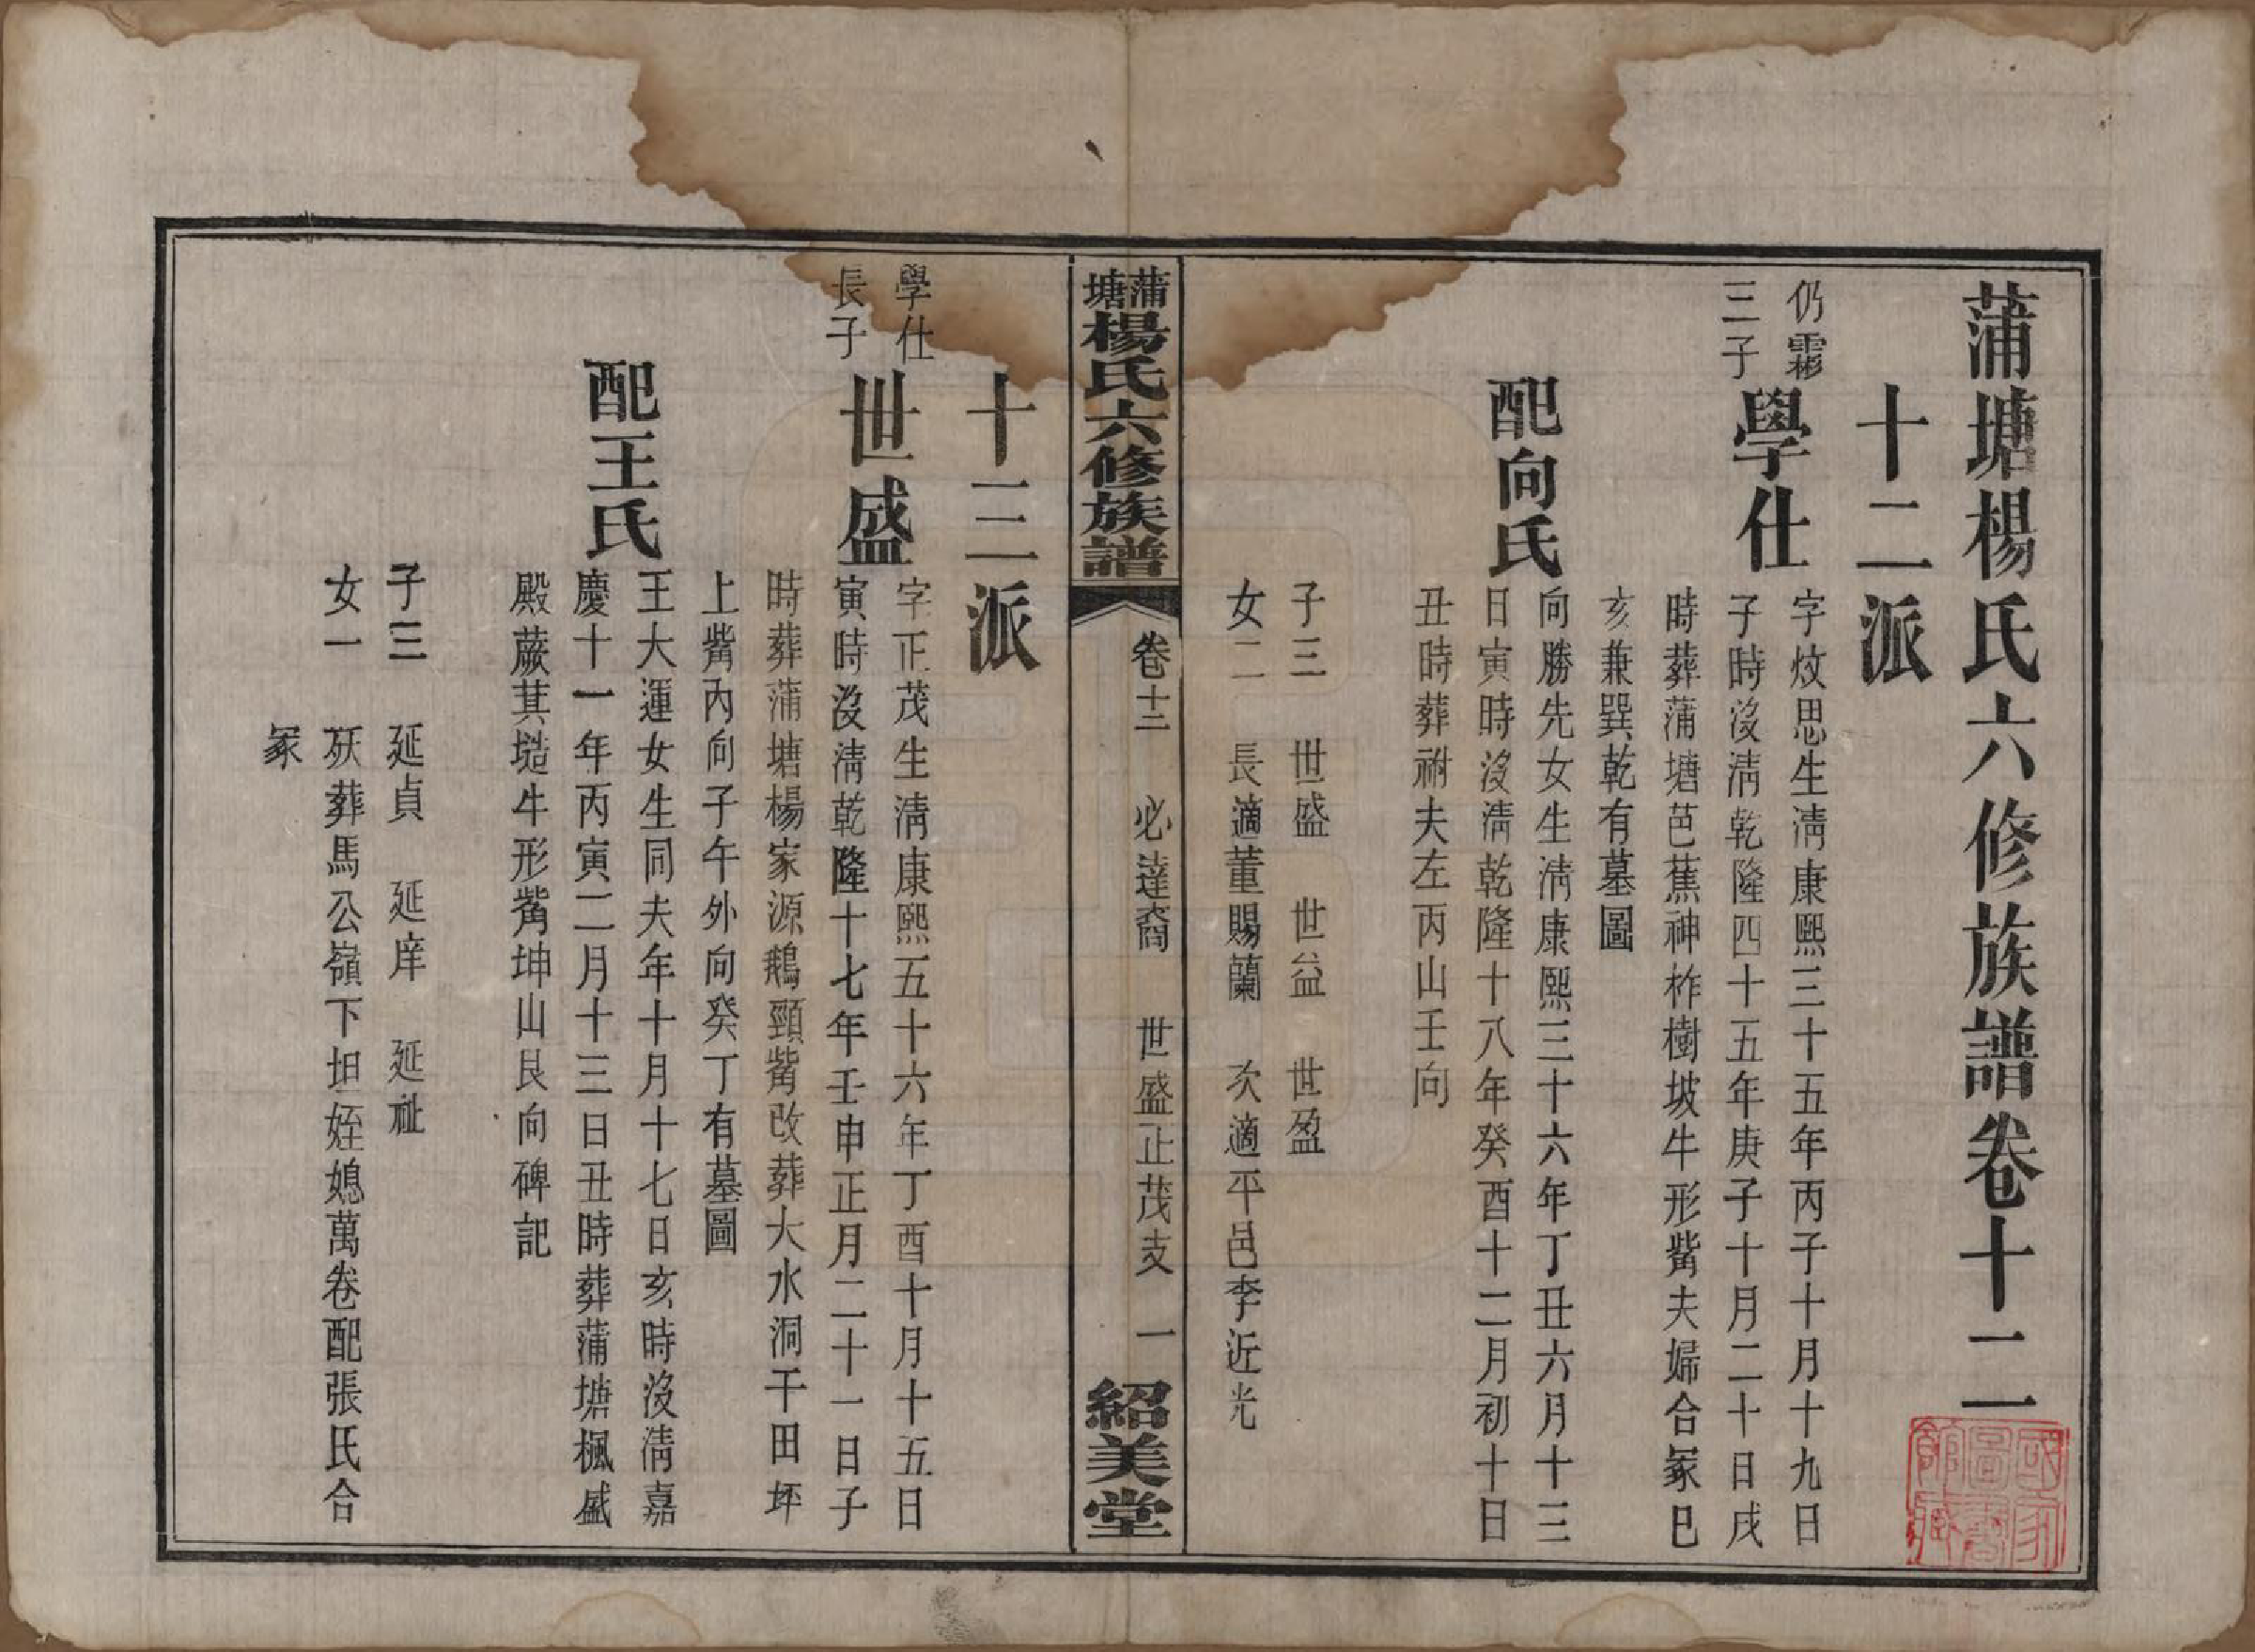 蒲塘楊氏六修族譜卷十二
十二派
仍霦
三子
學仕
字炆思生淸康熙三十五年丙子十月十九日
子時沒淸乾隆四十五年庚子十月二十日戌
時葬蒲塘芭蕉神柞樹坡牛形觜夫婦合冢巳
亥兼巽乾有墓圖
配向氏
向勝先女生淸康熙三十六年丁丑六月十三
日寅時沒淸乾隆十八年癸酉十二月初十日
丑時葬祔夫左丙山壬向
子三 世盛 世益 世盈
女二 長適董賜蘭 次適平邑李近光
蒲塘楊氏六修族譜 卷十二 必達裔 世盛正茂支 一 紹美堂
十三派
學仕
長子
世盛
字正茂生淸康熙五十六年丁酉十月十五日
寅時沒淸乾隆十七年壬申正月二十一日子
時葬蒲塘楊家源鵝頸觜改葬大水洞干田坪
上觜內向子午外向癸丁有墓圖
配王氏
王大運女生同夫年十月十七日亥時沒淸嘉
慶十一年丙寅二月十三日丑時葬蒲塘楓盛
殿蕨萁塏牛形觜坤山艮向碑記
子三 延貞 延庠 延祉
女一 殀葬馬公嶺下坦姪媳萬卷配張氏合
冢
國家圖書館藏